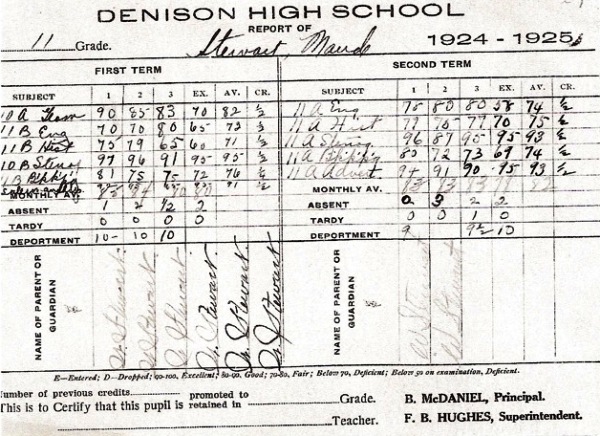 DENISON HIGH SCHOOL
REPORT OF
11 Grade. Stewart, Maude 1924-1925
FIRST TERM
SUBJECT 1 2 3 EX. AV. CR.
10 A 90 85 83 70 82 ½
11 B Eng 70 70 80 65 73 ½
11 B Hist 75 79 65 60 71 ½
10 B Stenog 97 96 91 95 95 ½
11 B Bkkpg 81 75 75 72 76 ½
MONTHLY AV.
ABSENT 1 2 ½ 2
TARDY 0 0 0 0
DEPORTMENT 10- 10 10
NAME OF PARENT OR GUARDIAN
Stewart.
Stewart
Stewart
Stewart.
Stewart
Stewart
SECOND TERM
SUBJECT 1 2 3 EX. AV. CR.
11 A Eng 75 80 80 58 74 ½
11 A Hist 77 70 75 ½
11 A Stenog 96 87 95 95 93 ½
11 A Bkkpg 72 73 69 74 ½
11 A Advert 94 91 90 95 93 ½
MONTHLY AV. 83 83 82
ABSENT 0 3 2 2
TARDY 0 0 1 0
DEPORTMENT 9 9½ 10
NAME OF PARENT OR GUARDIAN
Stewart
Stewart
E—Entered; D—Dropped; 90-100, Excellent; 80-90, Good; 70-80, Fair; Below 70, Deficient; Below 50 on examination, Deficient.
Number of previous credits
This is to Certify that this pupil is promoted to retained in Grade.
Teacher.
B. McDANIEL, Principal.
F. B. HUGHES, Superintendent.